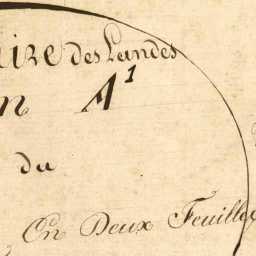 aire des Landes
on A1
du
En Deux Feuilles